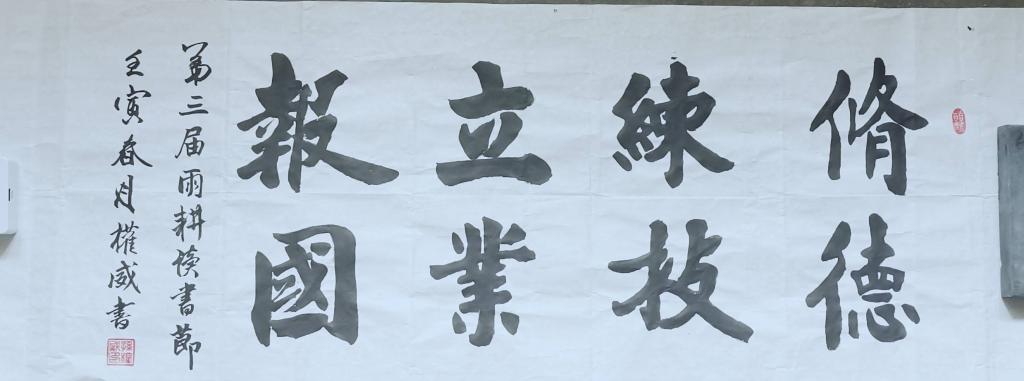 脩德
練技
立業
報國
第三届雨耕读書節
壬寅春月權威書